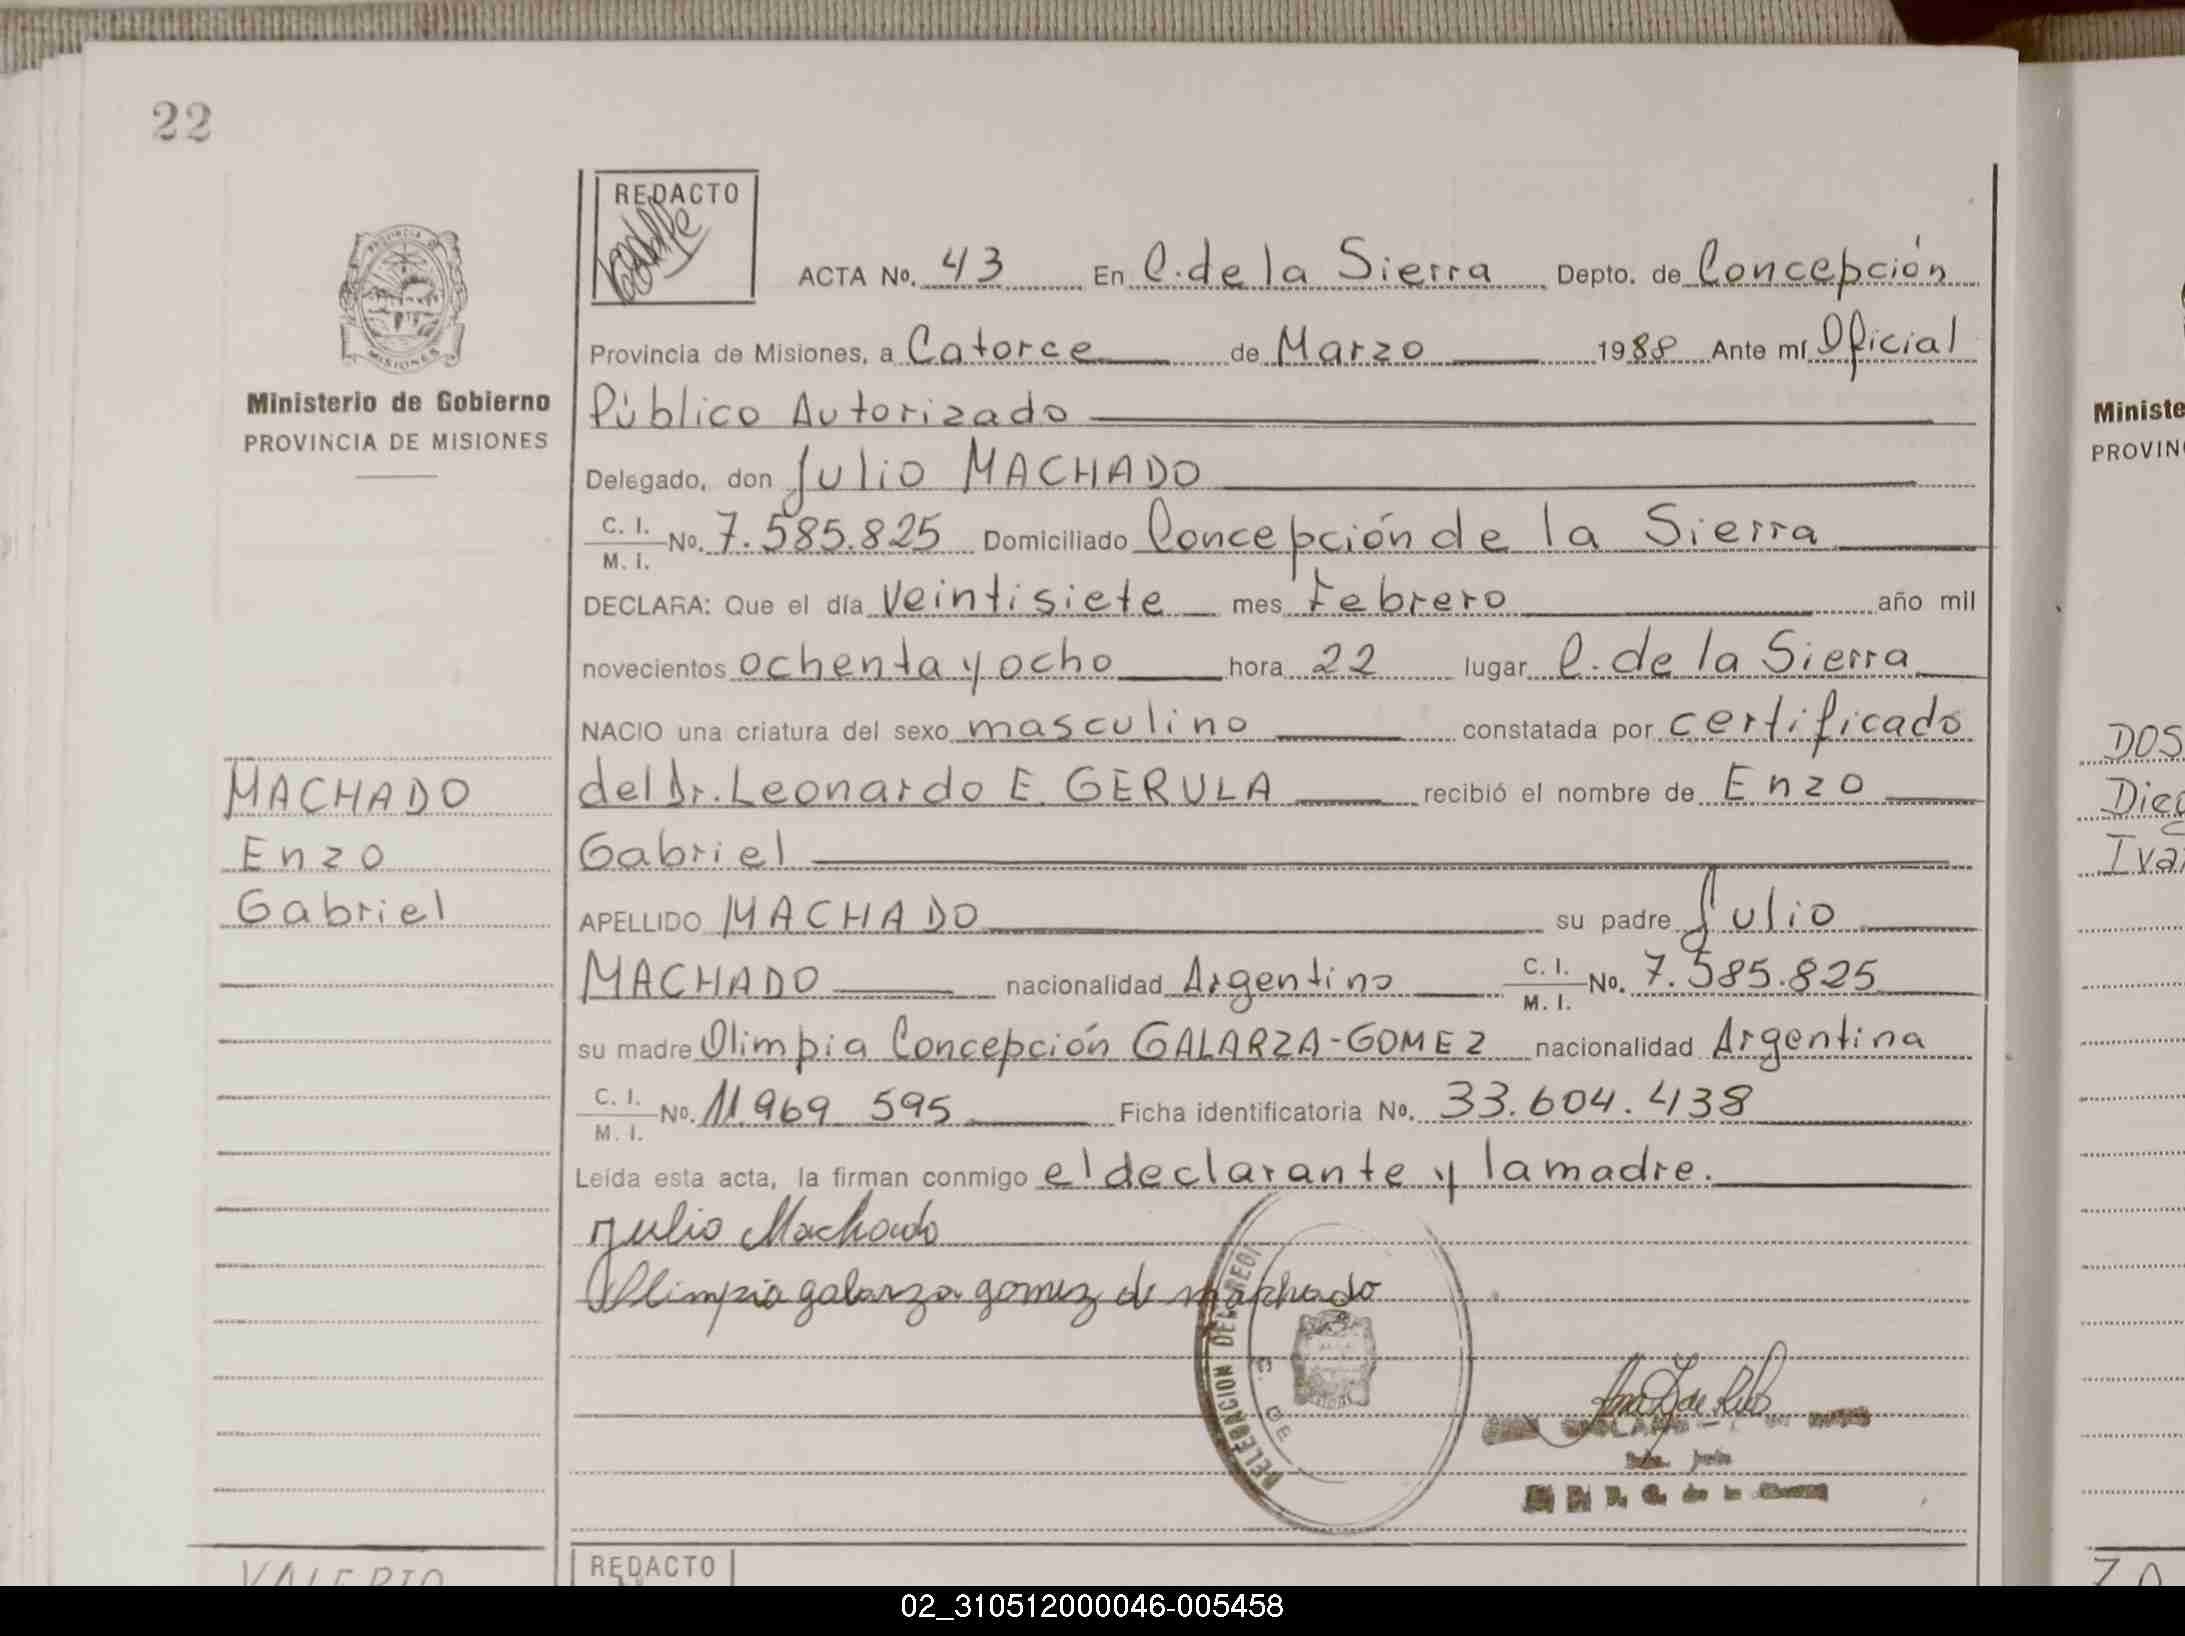 22
REDACTO
PROVINCIA DE
MISIONES
Ministerio de Gobierno
PROVINCIA DE MISIONES
ACTA No. 43 En C. de la Sierra Depto. de Concepción
Provincia de Misiones, a Catorce de Marzo 1988 Ante mí Oficial
Público Autorizado
Delegado, don Julio MACHADO
C. I. M. I. No. 7.585.825 Domiciliado Concepción de la Sierra
DECLARA: Que el día veintisiete mes Febrero año mil
novecientos ochenta y ocho hora 22 lugar C. de la Sierra
NACIO una criatura del sexo masculino constatada por certificado
del Dr. Leonardo E. GERULA recibió el nombre de Enzo
Gabriel
APELLIDO MACHADO su padre Julio
MACHADO nacionalidad Argentino C. I. M. I. No. 7.585.825
su madre Olimpia Concepción GALARZA-GOMEZ nacionalidad Argentina
C. I. M. I. No. 11.969.595 Ficha identificatoria No. 33.604.438
Leída esta acta, la firman conmigo el declarante y la madre.
Julio Machado
Olimpia galarza gomez de machado
MACHADO
Enzo
Gabriel
DELEGACION DEL REGI
de la
VALERIO
REDACTO
Ministe
PROVIN
DOS
Dieg
Iva
02_310512000046-005458